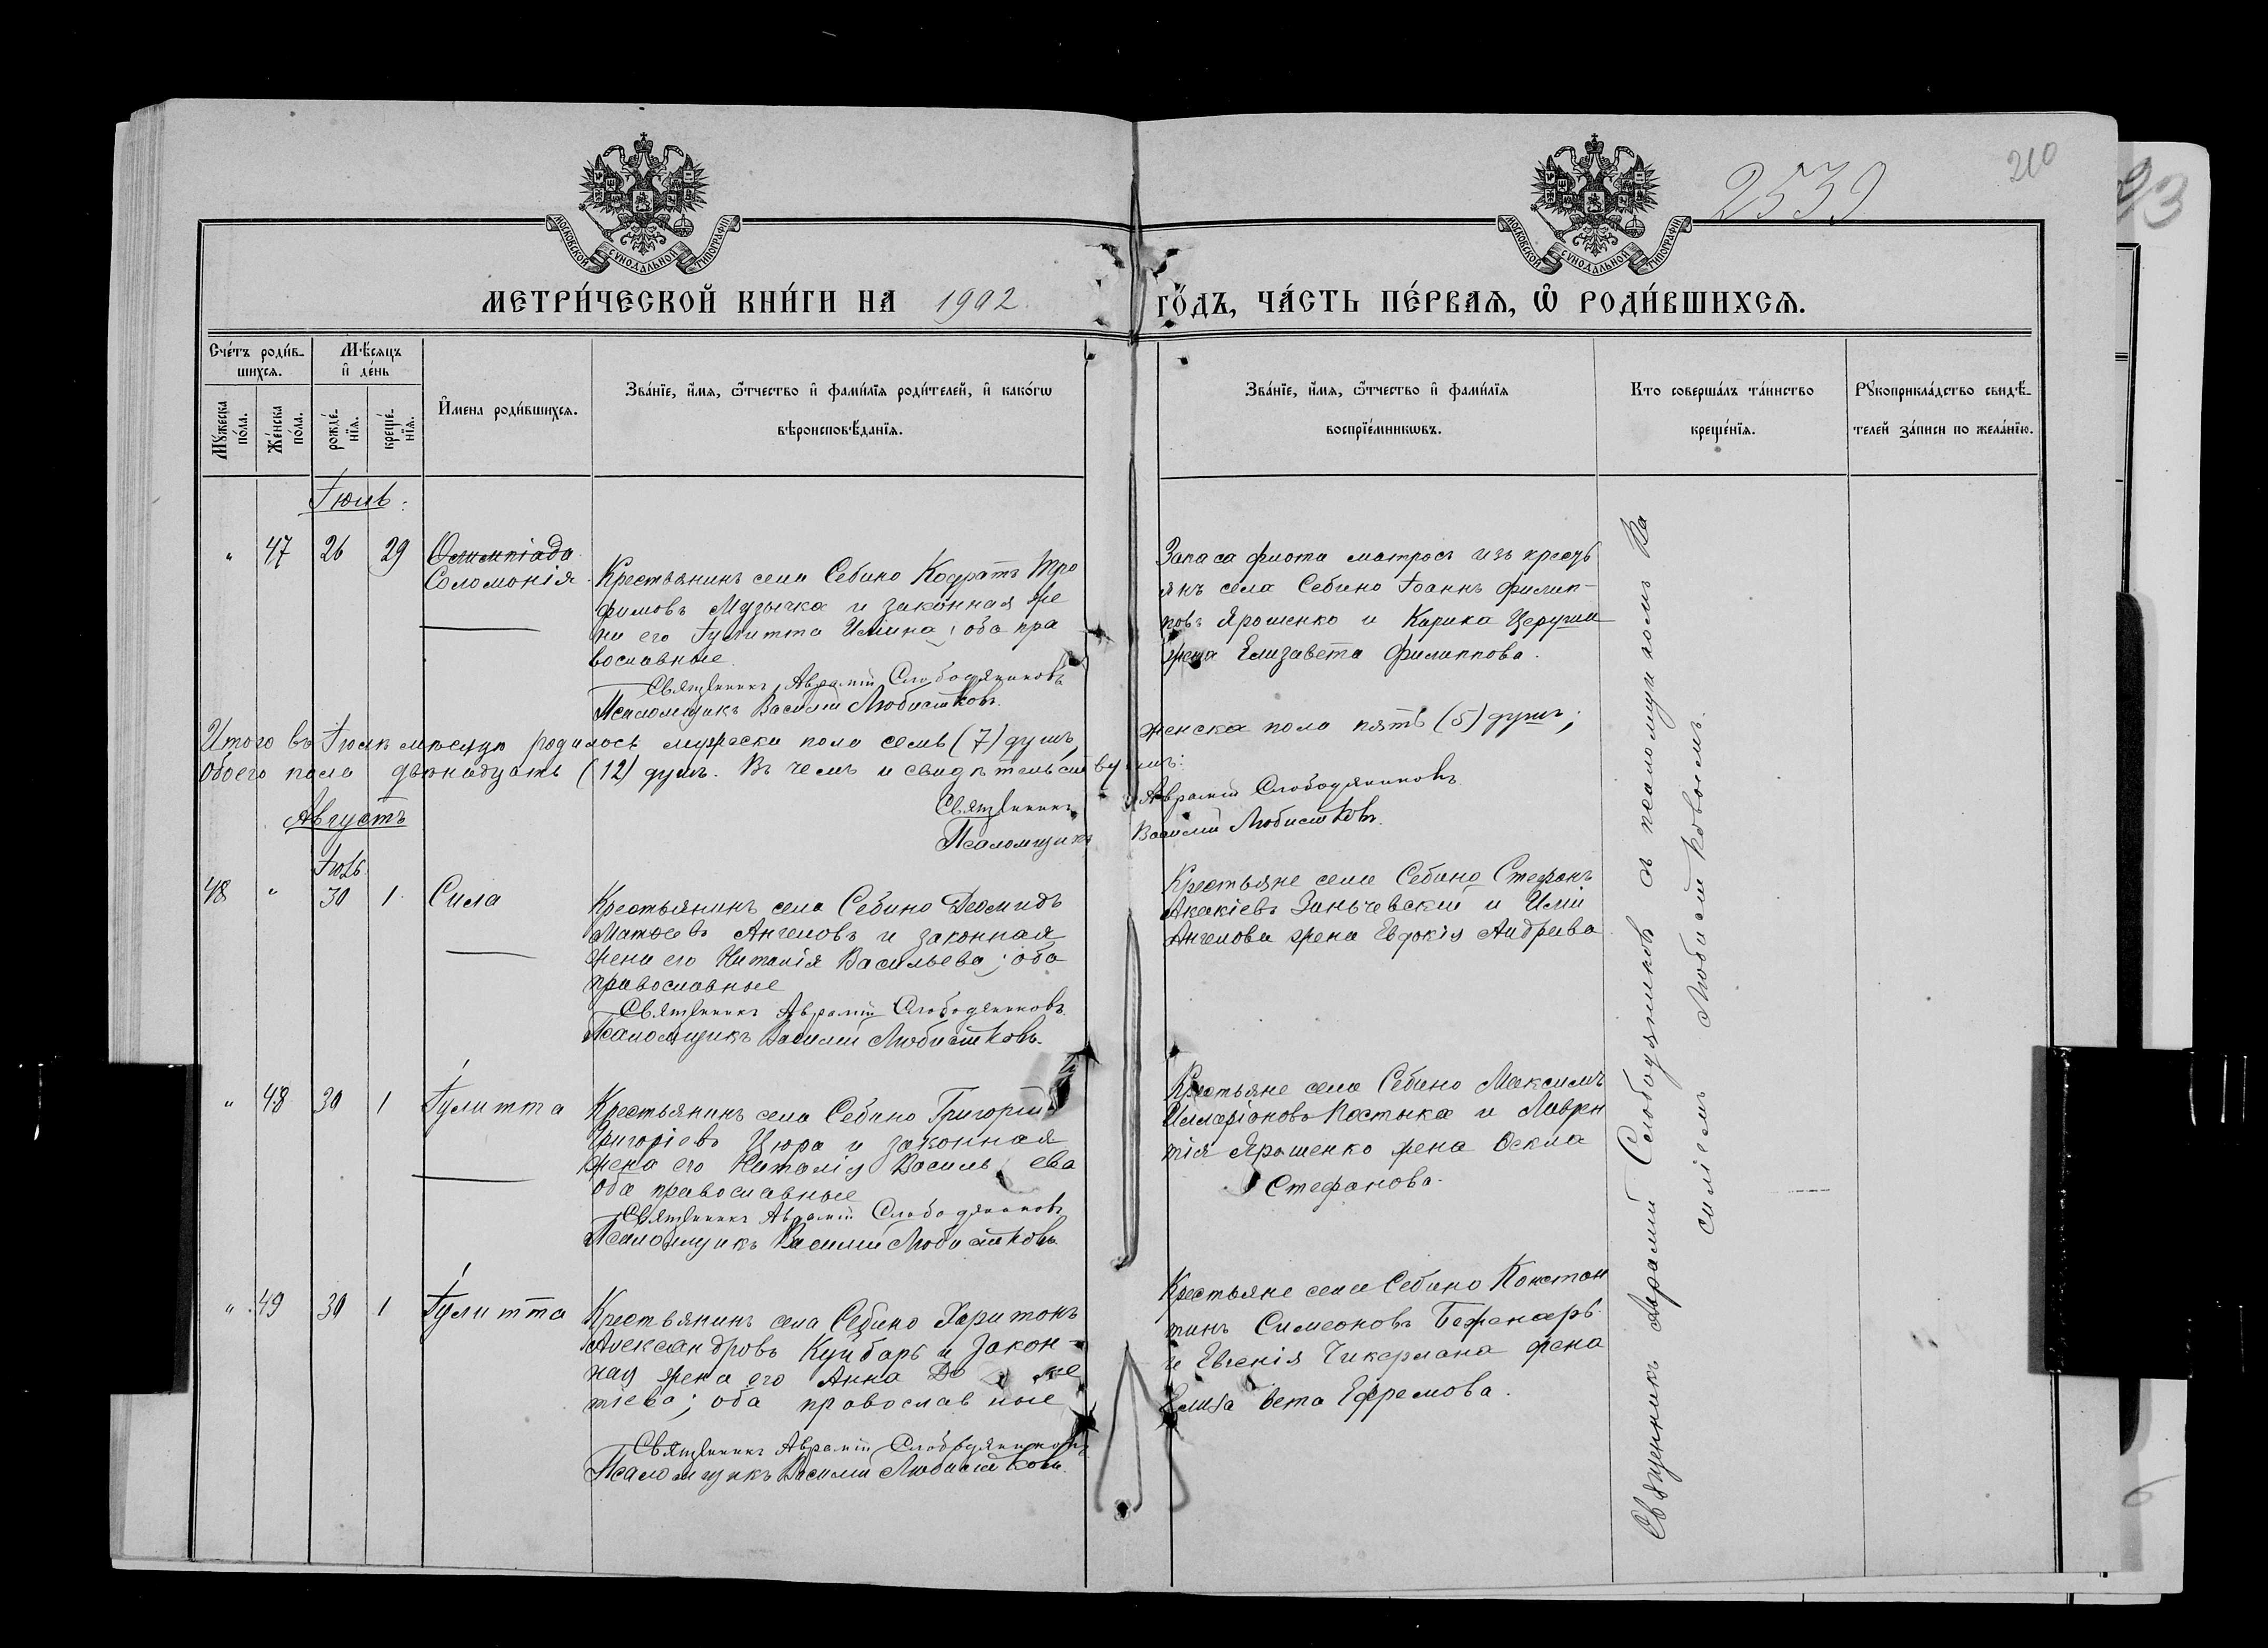 2539
210
93
МОСКОВСКОЙ СУНОДАЛЬНОЙ ТИПОГРАФІИ
МОСКОВСКОЙ СУНОДАЛЬНОЙ ТИПОГРАФІИ
МЕТРИ́ЧЕСКОЙ КНИ́ГИ НА 1902. ГО́ДЪ, ЧА́СТЬ ПЕ́РВАѦ, Ѿ РОДИ́ВШИХСѦ.
Сче́тъ роди́в-
шихсѧ.
Мѣ́сѧцъ
и҆ де́нь
Мꙋ́жеска
по́ла.
Же́нска
по́ла.
рожде́-
нїѧ.
креще́-
нїѧ.
И҆мена роди́вшихсѧ.
Зва́нїе, и҆́мѧ, ѻ҆́тчество и҆ фами́лїѧ роди́телей, и҆ како́гѡ
вѣроисповѣ́данїѧ.
Зва́нїе, и҆́мѧ, ѻ҆́тчество и҆ фами́лїѧ
воспрїе́мникѡвъ.
Кто соверша́лъ та́инство
креще́нїѧ.
Рꙋкоприкла́дство свидѣ́-
телей за́писи по жела́нїю.
Іюль.
" 47 26 29 Олимпіада
Соломонія
Крестьянинъ села Себино Кодратъ Тро
фимовъ Музычка и законная же
на его Іулитта Иліина; оба пра
вославные.
Священникъ Аврамій Слободяниковъ
Псаломщикъ Василій Любистковъ.
Запаса флота матросъ изъ кресть
янъ села Себино Іоаннъ Филип-
повъ Ярошенко и Карика Церуша
жена Елизавета Филиппова.
Итого въ Іюлѣ мѣсяцѣ родилось мужеска пола семь (7) душъ, женска пола пять (5) душъ;
обоего пола двѣнадцать (12) душъ. Въ чемъ и свидѣтельствуемъ:
Священникъ Аврамій Слободяниковъ
Псаломщикъ Василій Любистковъ.
Августъ
Іюль
48 " 30 1. Сила
Крестьянинъ села Себино Деомидъ
Матѳеевъ Ангеловъ и законная
жена его Наталія Васильева; оба
православные
Священникъ Аврамій Слободяниковъ
Псаломщикъ Василій Любистковъ.
Крестьяне села Себино Стефанъ
Акакіевъ Зиньчевскій и Иліи
Ангелова жена Евдокія Андреева
" 48 30 1 Іулитта
Крестьянинъ села Себино Григорій
Григоріевъ Цюра и законная
жена его Наталія Васильева
оба православные
Священникъ Аврамій Слободяниковъ
Псаломщикъ Василій Любистковъ
Крестьяне села Себино Максимъ
Илларіоновъ Постыка и Лаврен
тія Ярошенко жена Ѳекла
Стефанова.
" 49 30 1 Іулитта
Крестьянинъ села Себино Харитонъ
Александровъ Куцбарь и закон-
ная жена его Анна
тіева; оба православные
Священникъ Аврамій Слободяниковъ
Псаломщикъ Василій Любистковъ.
Крестьяне села Себино Констан
тинъ Симеоновъ Беженарь
и Евгенія Чикермана жена
Елизавета Ефремова.
Священникъ Аврамій Слободяниковъ съ псаломщикомъ Ва
силіемъ Любистковымъ.